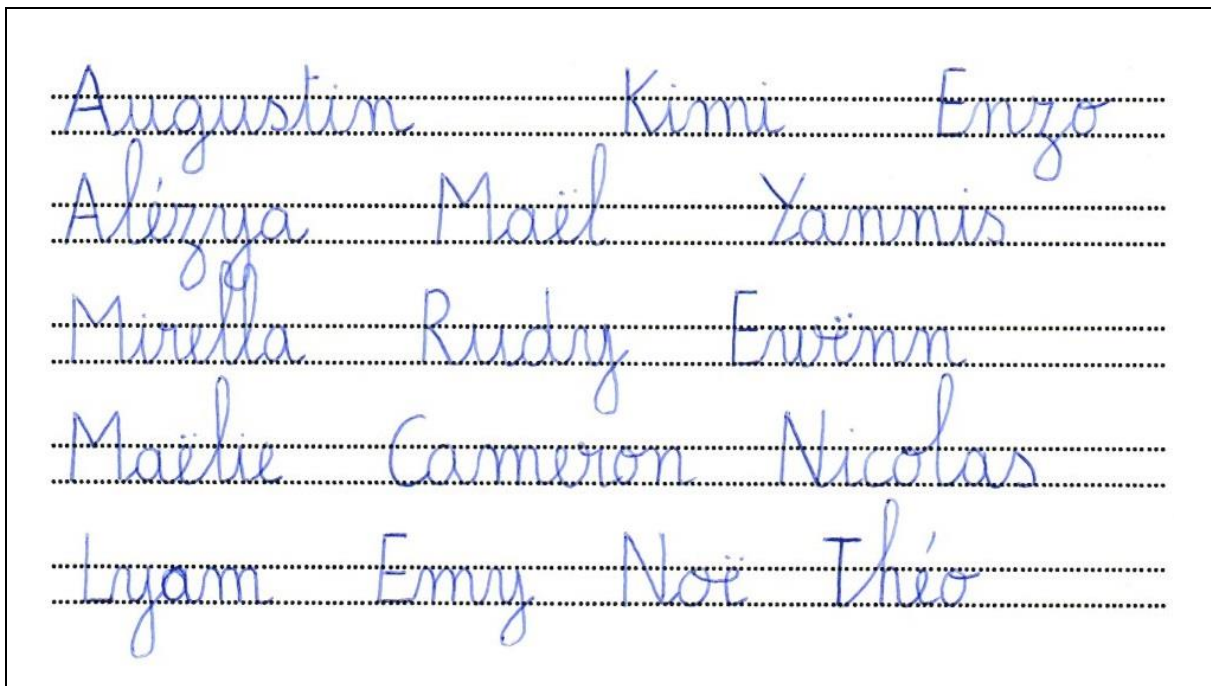 Augustin Kimi Enzo
Alézya Maël Yannis
Mirella Rudy Erwënn
Maëlie Cameron Nicolas
Lyam Emy Noë Théo